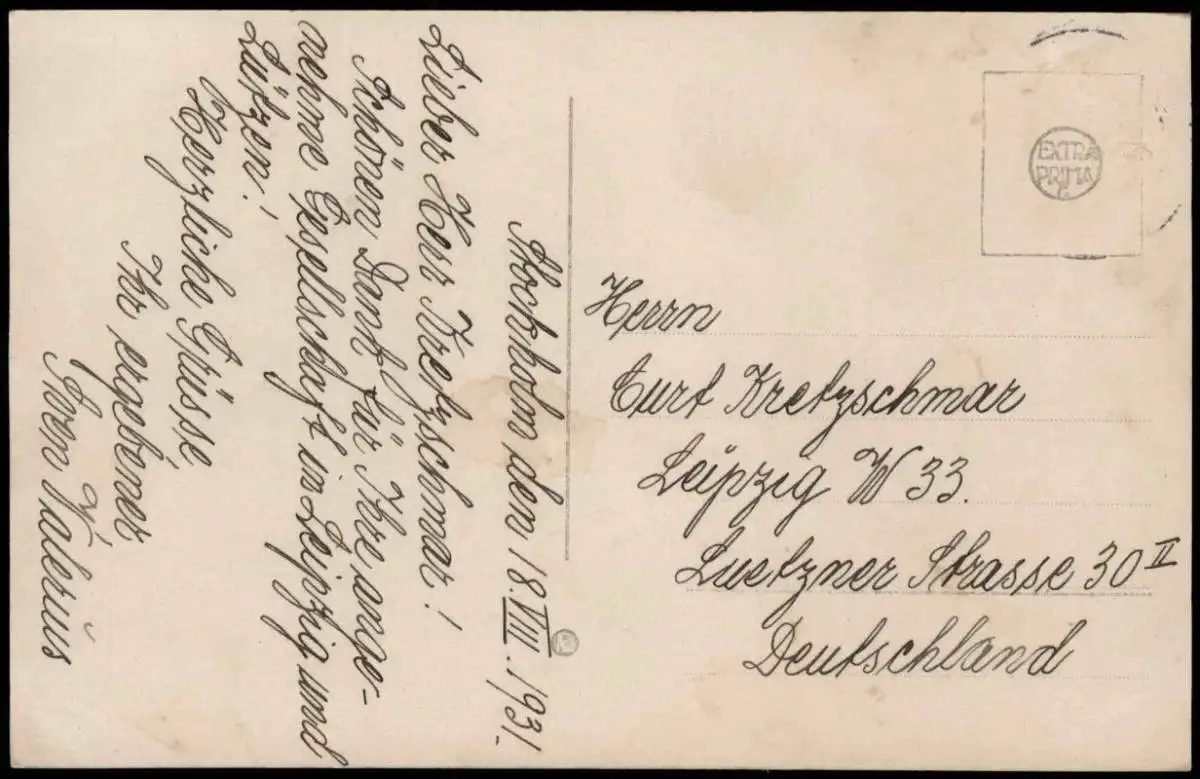 Stockholm den 18.VIII.1931.
Lieber Herr Kretzschmar!
Schönen Dank für Ihre ange-
nehme Gesellschaft in Leipzig und
Lützen!
Herzliche Grüsse
Ihr ergebener
Sven Valerius
EXTRA
PRIMA
Herrn
Curt Kretzschmar
Leipzig W 33.
Luetzner Strasse 30 II
Deutschland